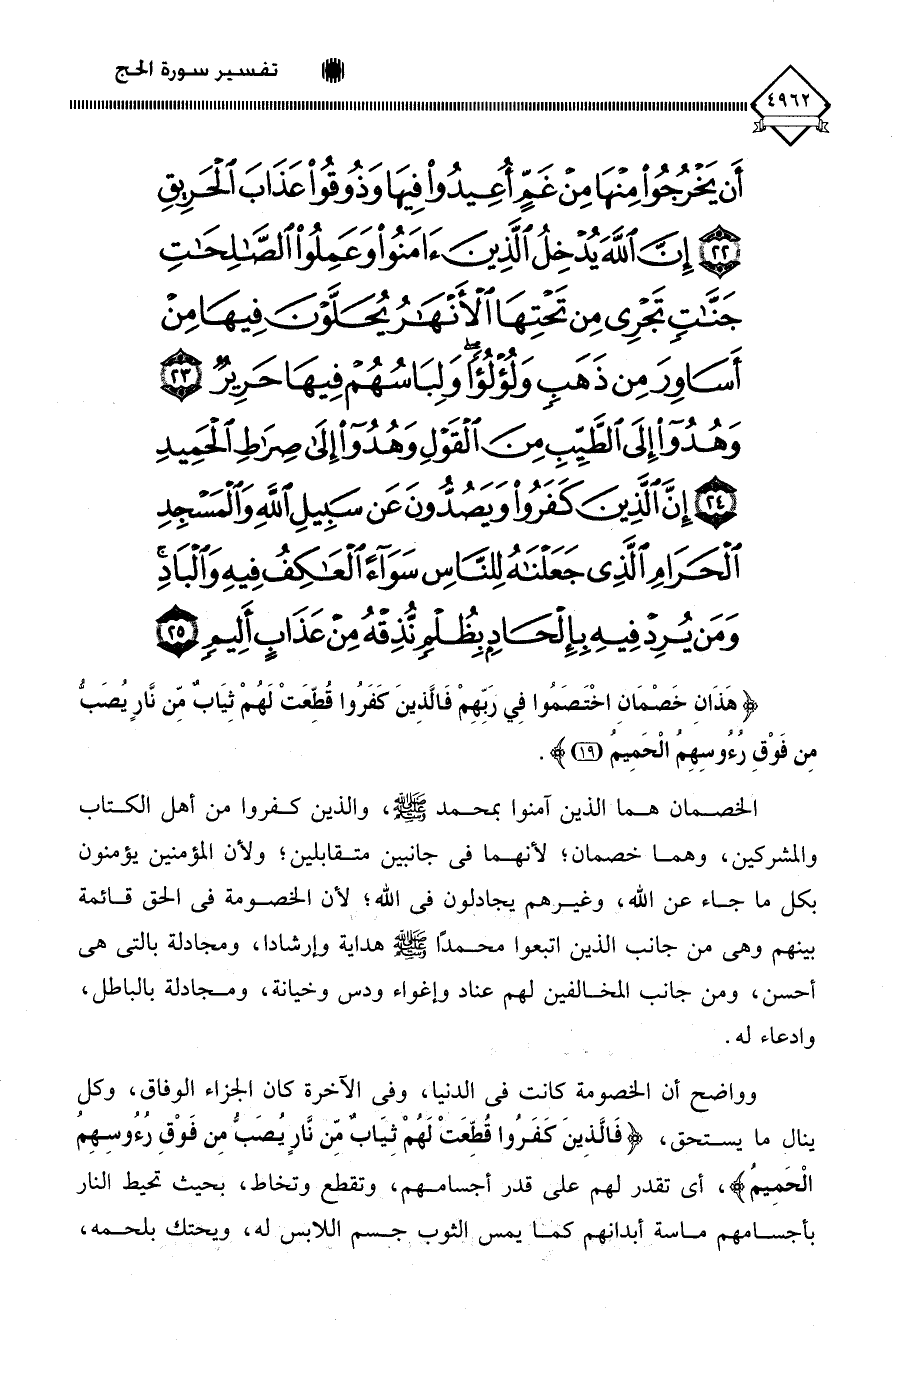 تفسير سورة الحج
٤٩٦٢
أَن يَخْرُجُوا۟ مِنْهَا مِنْ غَمٍّ أُعِيدُوا۟ فِيهَا وَذُوقُوا۟ عَذَابَ ٱلْحَرِيقِ
٢٢ إِنَّ ٱللَّهَ يُدْخِلُ ٱلَّذِينَ ءَامَنُوا۟ وَعَمِلُوا۟ ٱلصَّٰلِحَٰتِ
جَنَّٰتٍ تَجْرِى مِن تَحْتِهَا ٱلْأَنْهَٰرُ يُحَلَّوْنَ فِيهَا مِنْ
أَسَاوِرَ مِن ذَهَبٍ وَلُؤْلُؤًا ۖ وَلِبَاسُهُمْ فِيهَا حَرِيرٌ ٢٣
وَهُدُوٓا۟ إِلَى ٱلطَّيِّبِ مِنَ ٱلْقَوْلِ وَهُدُوٓا۟ إِلَىٰ صِرَٰطِ ٱلْحَمِيدِ
٢٤ إِنَّ ٱلَّذِينَ كَفَرُوا۟ وَيَصُدُّونَ عَن سَبِيلِ ٱللَّهِ وَٱلْمَسْجِدِ
ٱلْحَرَامِ ٱلَّذِى جَعَلْنَٰهُ لِلنَّاسِ سَوَآءً ٱلْعَٰكِفُ فِيهِ وَٱلْبَادِ ۚ
وَمَن يُرِدْ فِيهِ بِإِلْحَادٍۭ بِظُلْمٍ نُّذِقْهُ مِنْ عَذَابٍ أَلِيمٍ ٢٥
﴿ هَذَانِ خَصْمَانِ اخْتَصَمُوا فِي رَبِّهِمْ فَالَّذِينَ كَفَرُوا قُطِّعَتْ لَهُمْ ثِيَابٌ مِّن نَّارٍ يُصَبُّ
مِن فَوْقِ رُءُوسِهِمُ الْحَمِيمُ (١٩) ﴾ .
الخصمان هما الذين آمنوا بمحمد ﷺ، والذين كفروا من أهل الكتاب
والمشركين، وهما خصمان؛ لأنهما فى جانبين متقابلين؛ ولأن المؤمنين يؤمنون
بكل ما جاء عن الله، وغيرهم يجادلون فى الله؛ لأن الخصومة فى الحق قائمة
بينهم وهى من جانب الذين اتبعوا محمدًا ﷺ هداية وإرشادا، ومجادلة بالتى هى
أحسن، ومن جانب المخالفين لهم عناد وإغواء ودس وخيانة، ومجادلة بالباطل،
وادعاء له .
وواضح أن الخصومة كانت فى الدنيا، وفى الآخرة كان الجزاء الوفاق، وكل
ينال ما يستحق، ﴿ فَالَّذِينَ كَفَرُوا قُطِّعَتْ لَهُمْ ثِيَابٌ مِّن نَّارٍ يُصَبُّ مِن فَوْقِ رُءُوسِهِمُ
الْحَمِيمُ ﴾، أى تقدر لهم على قدر أجسامهم، وتقطع وتخاط، بحيث تحيط النار
بأجسامهم ماسة أبدانهم كما يمس الثوب جسم اللابس له، ويحتك بلحمه،